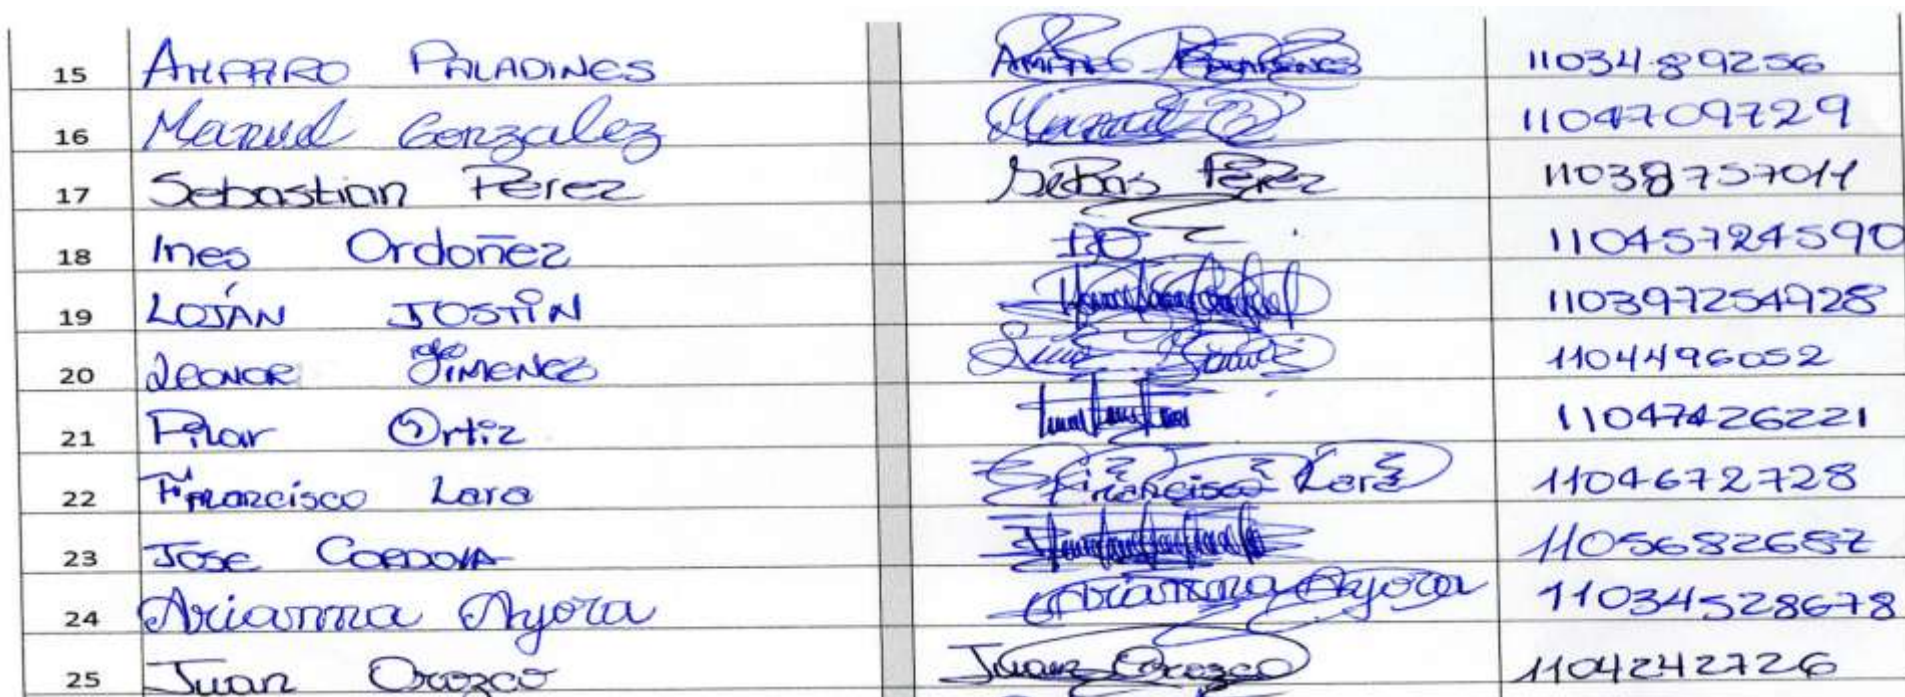 15 AMPARO PALADINES AMPARO PALADINES 1103489256
16 Manuel Gonzalez Manuel 1104709729
17 Sebastian Perez Sebas Pérez 11038757011
18 Ines Ordoñez IO 11045724590
19 LOJÁN JOSTIN 110397254928
20 LEONOR JIMENEZ 1104496052
21 Pilar Ortiz 11047426221
22 Francisco Lara Francisco Lara 1104672728
23 JOSE CORDOVA 1105682687
24 Arianna Ayora Arianna Ayora 11034528678
25 Juan Orozco Juan Orozco 1104242726